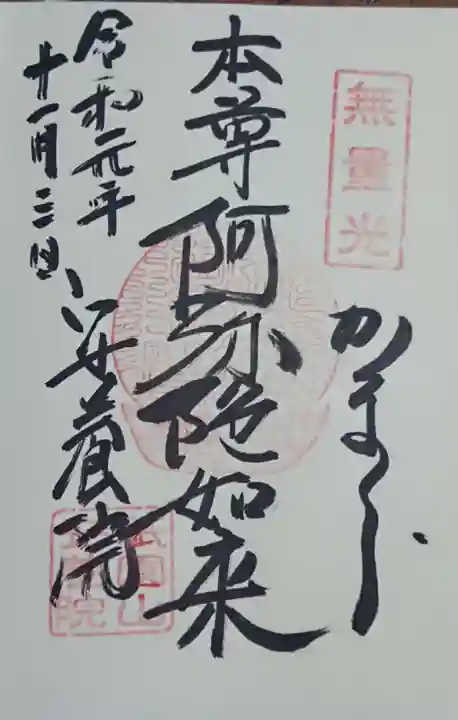 無量光
かまくら
本尊阿弥陀如来
安養院
令和元年
十一月三日